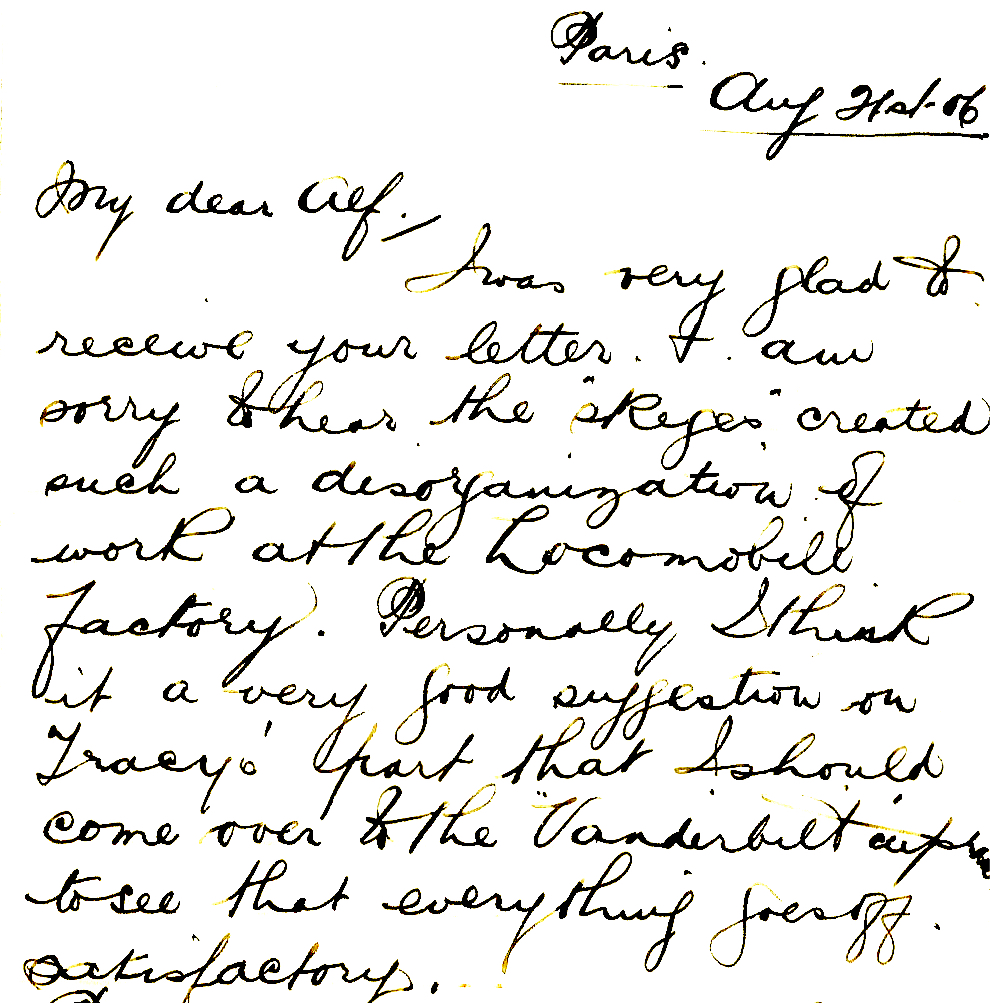 Paris.
Aug 21st-06
My dear Alf.
I was very glad to
receive your letter. I am
sorry to hear the "skeges" created
such a disorganization of
work at the Locomobile
factory. Personally I think
it a very good suggestion on
Tracy's part that I should
come over to the "Vanderbilt cup"
to see that everything goes off
satisfactory.